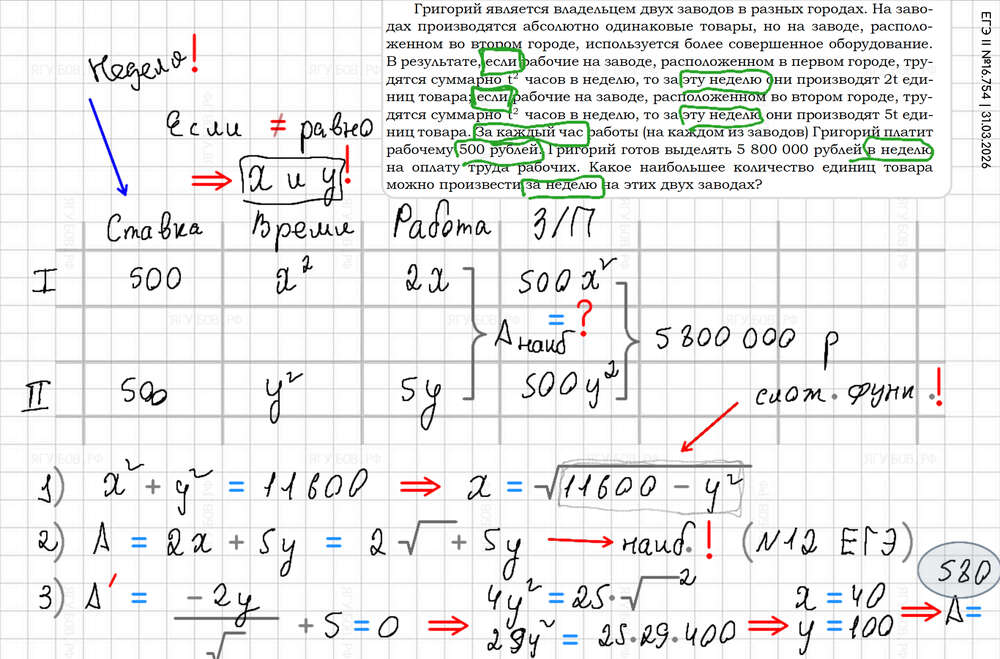 Григорий является владельцем двух заводов в разных городах. На заво-
дах производятся абсолютно одинаковые товары, но на заводе, располо-
женном во втором городе, используется более совершенное оборудование.
В результате, если рабочие на заводе, расположенном в первом городе, тру-
дятся суммарно t² часов в неделю, то за эту неделю они производят 2t еди-
ниц товара; если рабочие на заводе, расположенном во втором городе, тру-
дятся суммарно t² часов в неделю, то за эту неделю они производят 5t еди-
ниц товара. За каждый час работы (на каждом из заводов) Григорий платит
рабочему 500 рублей. Григорий готов выделять 5 800 000 рублей в неделю
на оплату труда рабочих. Какое наибольшее количество единиц товара
можно произвести за неделю на этих двух заводах?
ЕГЭ II №16.754 | 31.03.2026
Неделя!
Если ≠ равно
⇒ x и y!
Ставка Время Работа З/П
I 500 x² 2x 500x²
= ?
Aнаиб
5800 000 р
II 500 y² 5y 500y²
слож. функ.!
1) x² + y² = 11600 ⇒ x = √11600 − y²
2) A = 2x + 5y = 2√ + 5y → наиб.! (N12 ЕГЭ)
3) A′ = −2y/√ + 5 = 0 ⇒ 4y² = 25·√² x = 40 ⇒ A = 580
29y² = 25·29·400 ⇒ y = 100
ЯГУБОВ.РФ